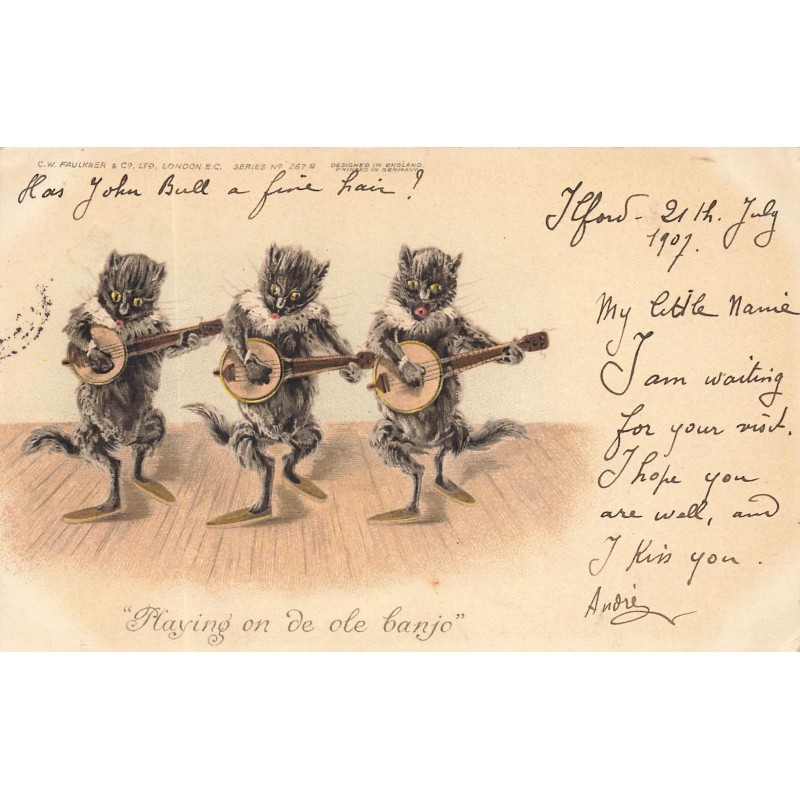 C.W. FAULKNER & CO. LTD, LONDON E.C. SERIES NO 267 B DESIGNED IN ENGLAND.
PRINTED IN GERMANY
Has John Bull a fine hair?
Ilford - 21th. July
1907.
My little Nanie
I am waiting
for your visit.
I hope you
are well, and
I kiss you.
André
"Playing on de ole banjo"